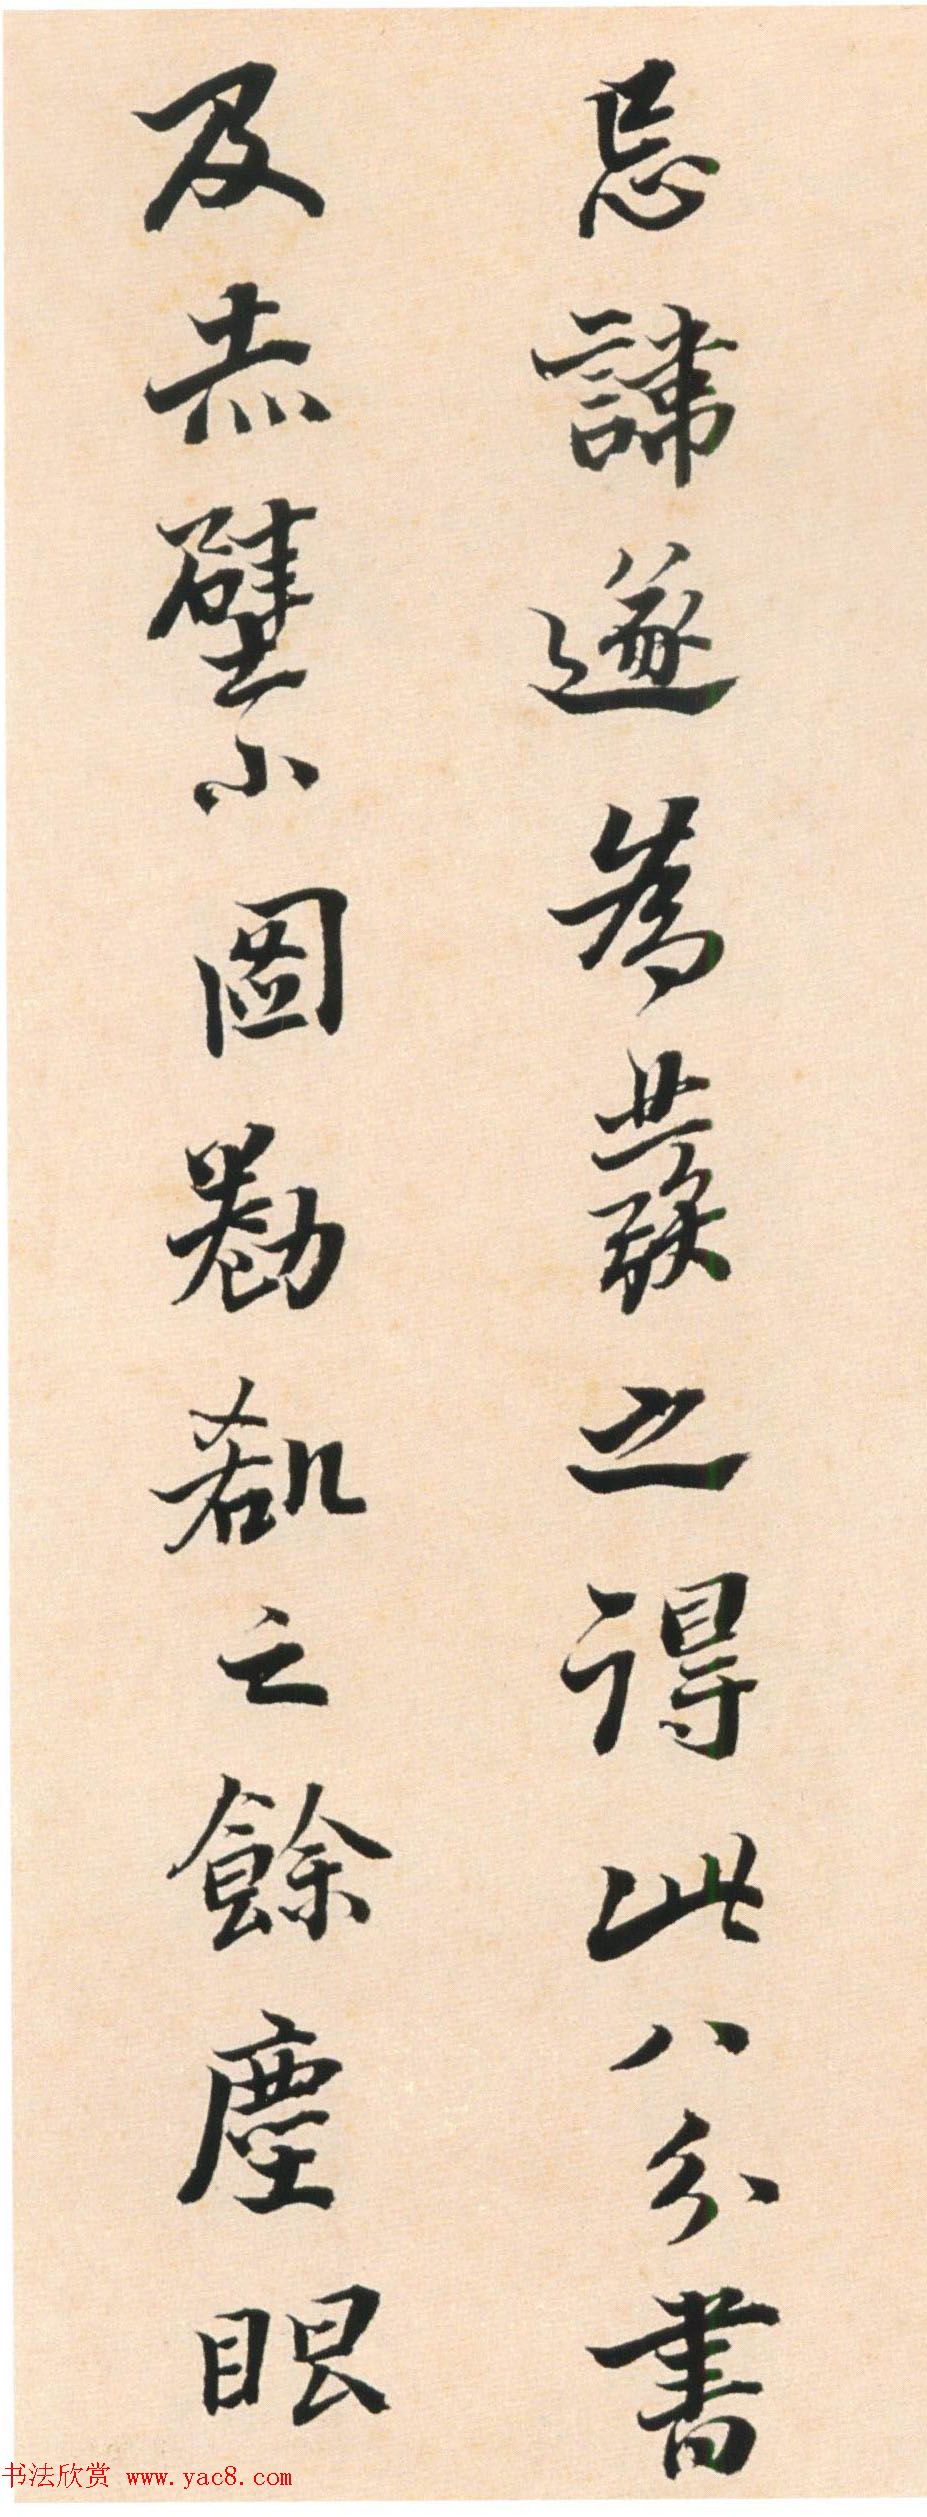 忌諱遂為發之得此八分書
及赤壁小圖勌之餘塵眼
书法欣赏 www.yac8.com